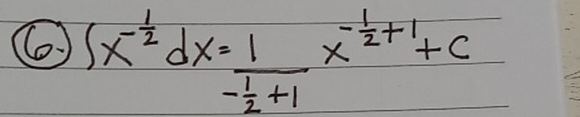 6. ∫x^{-\frac{1}{2}} dx = \frac{1}{-\frac{1}{2}+1} x^{-\frac{1}{2}+1} + C